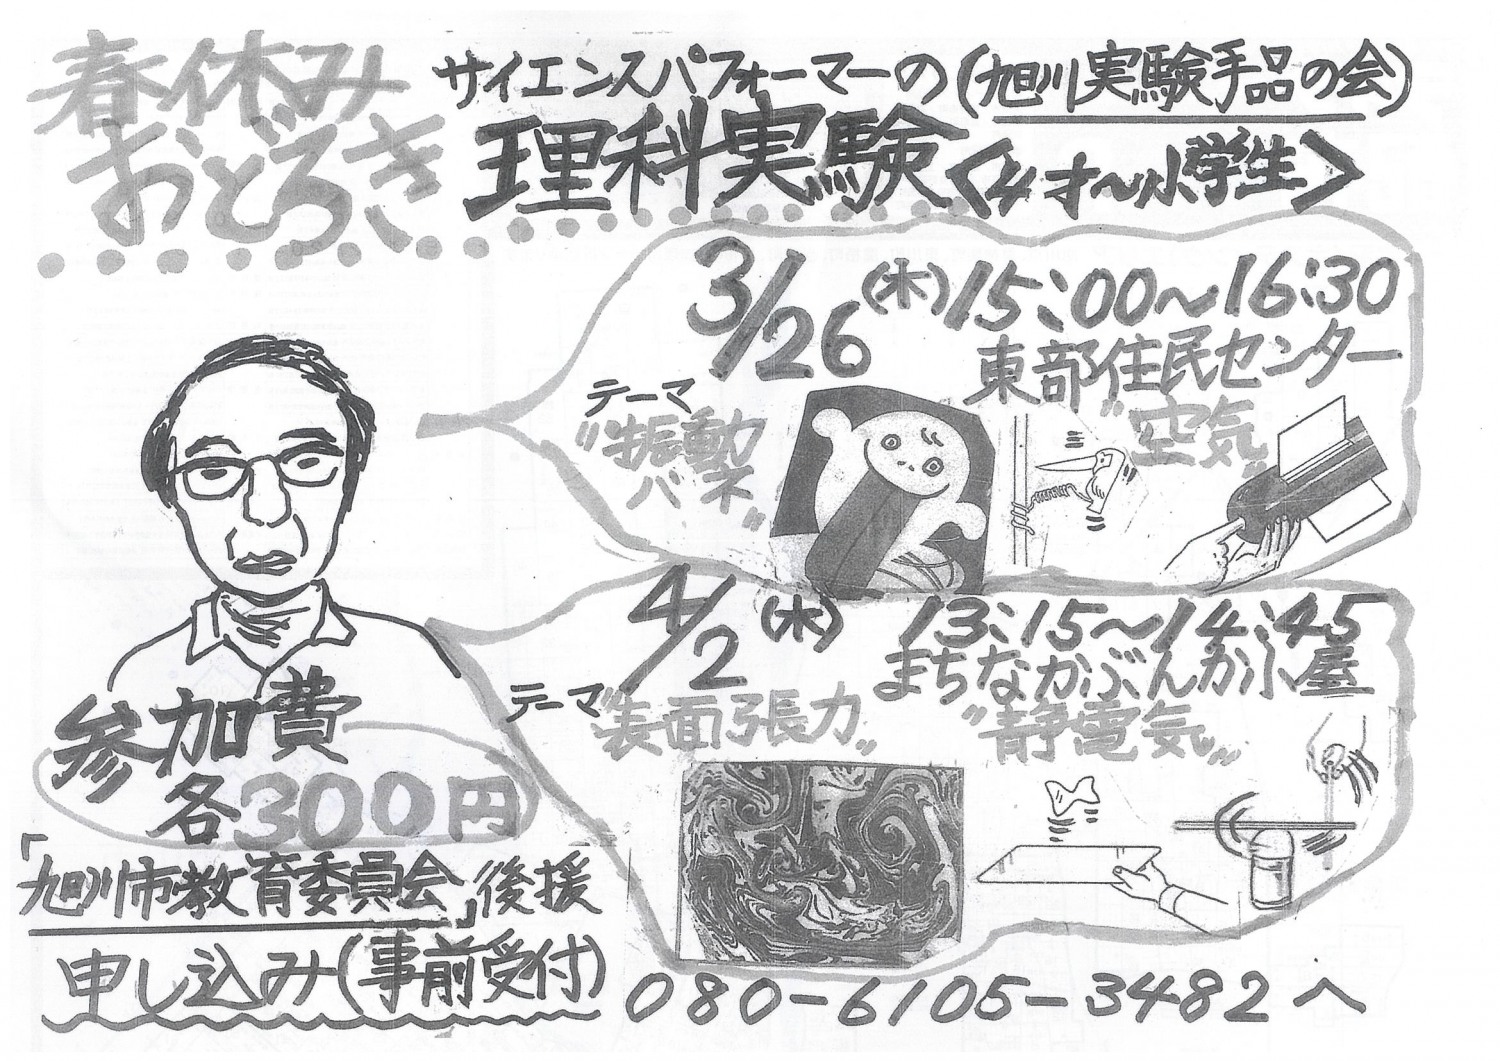 春休み
おどろき
サイエンスパフォーマーの(旭川実験手品の会)
理科実験<4才〜小学生>
3/26(木)15:00〜16:30
東部住民センター
テーマ
"振動
バネ"
"空気"
4/2(木) 13:15〜14:45
まちなかぶんか小屋
テーマ
"表面張力"
"静電気"
参加費
各300円
「旭川市教育委員会」後援
申し込み(事前受付)
080-6105-3482へ